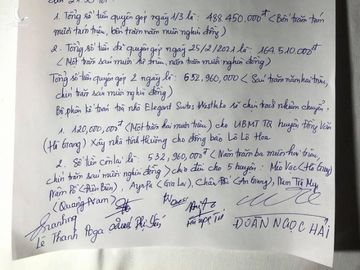 1. Tổng số tiền quyên góp ngày 1/3 là: 488.450.000đ (Bốn trăm tám
mươi tám triệu, bốn trăm năm mươi nghìn đồng)
2. Tổng số tiền đã quyên góp ngày 25/2/2021 là 164.510.000đ
(Một trăm sáu mươi tư triệu, năm trăm mười nghìn đồng)
Tổng số tiền quyên góp 2 ngày là: 652,960,000đ (Sáu trăm năm hai triệu,
chín trăm sáu mươi nghìn đồng)
Bộ phận kế toán tại nhà Elegant Suites Westlake sẽ chịu trách nhiệm chuyển:
1. 120,000,000đ (Một trăm hai mươi triệu) cho UBMTTQ huyện Đồng Văn
(Hà Giang) xây nhà tình thương cho đồng bào Lô Lô Hoa
2. Số tiền còn lại là 532,960,000đ (Năm trăm ba mươi hai triệu,
chín trăm sáu mươi nghìn đồng) cho đến cho 5 huyện: Mèo Vạc (Hà Giang)
Nậm Pồ (Điện Biên), AyaPa (Gia Lai), Châu Phú (An Giang), Nam Trà My
(Quảng Nam)
Lê Thanh Nga
ĐOÀN NGỌC HẢI